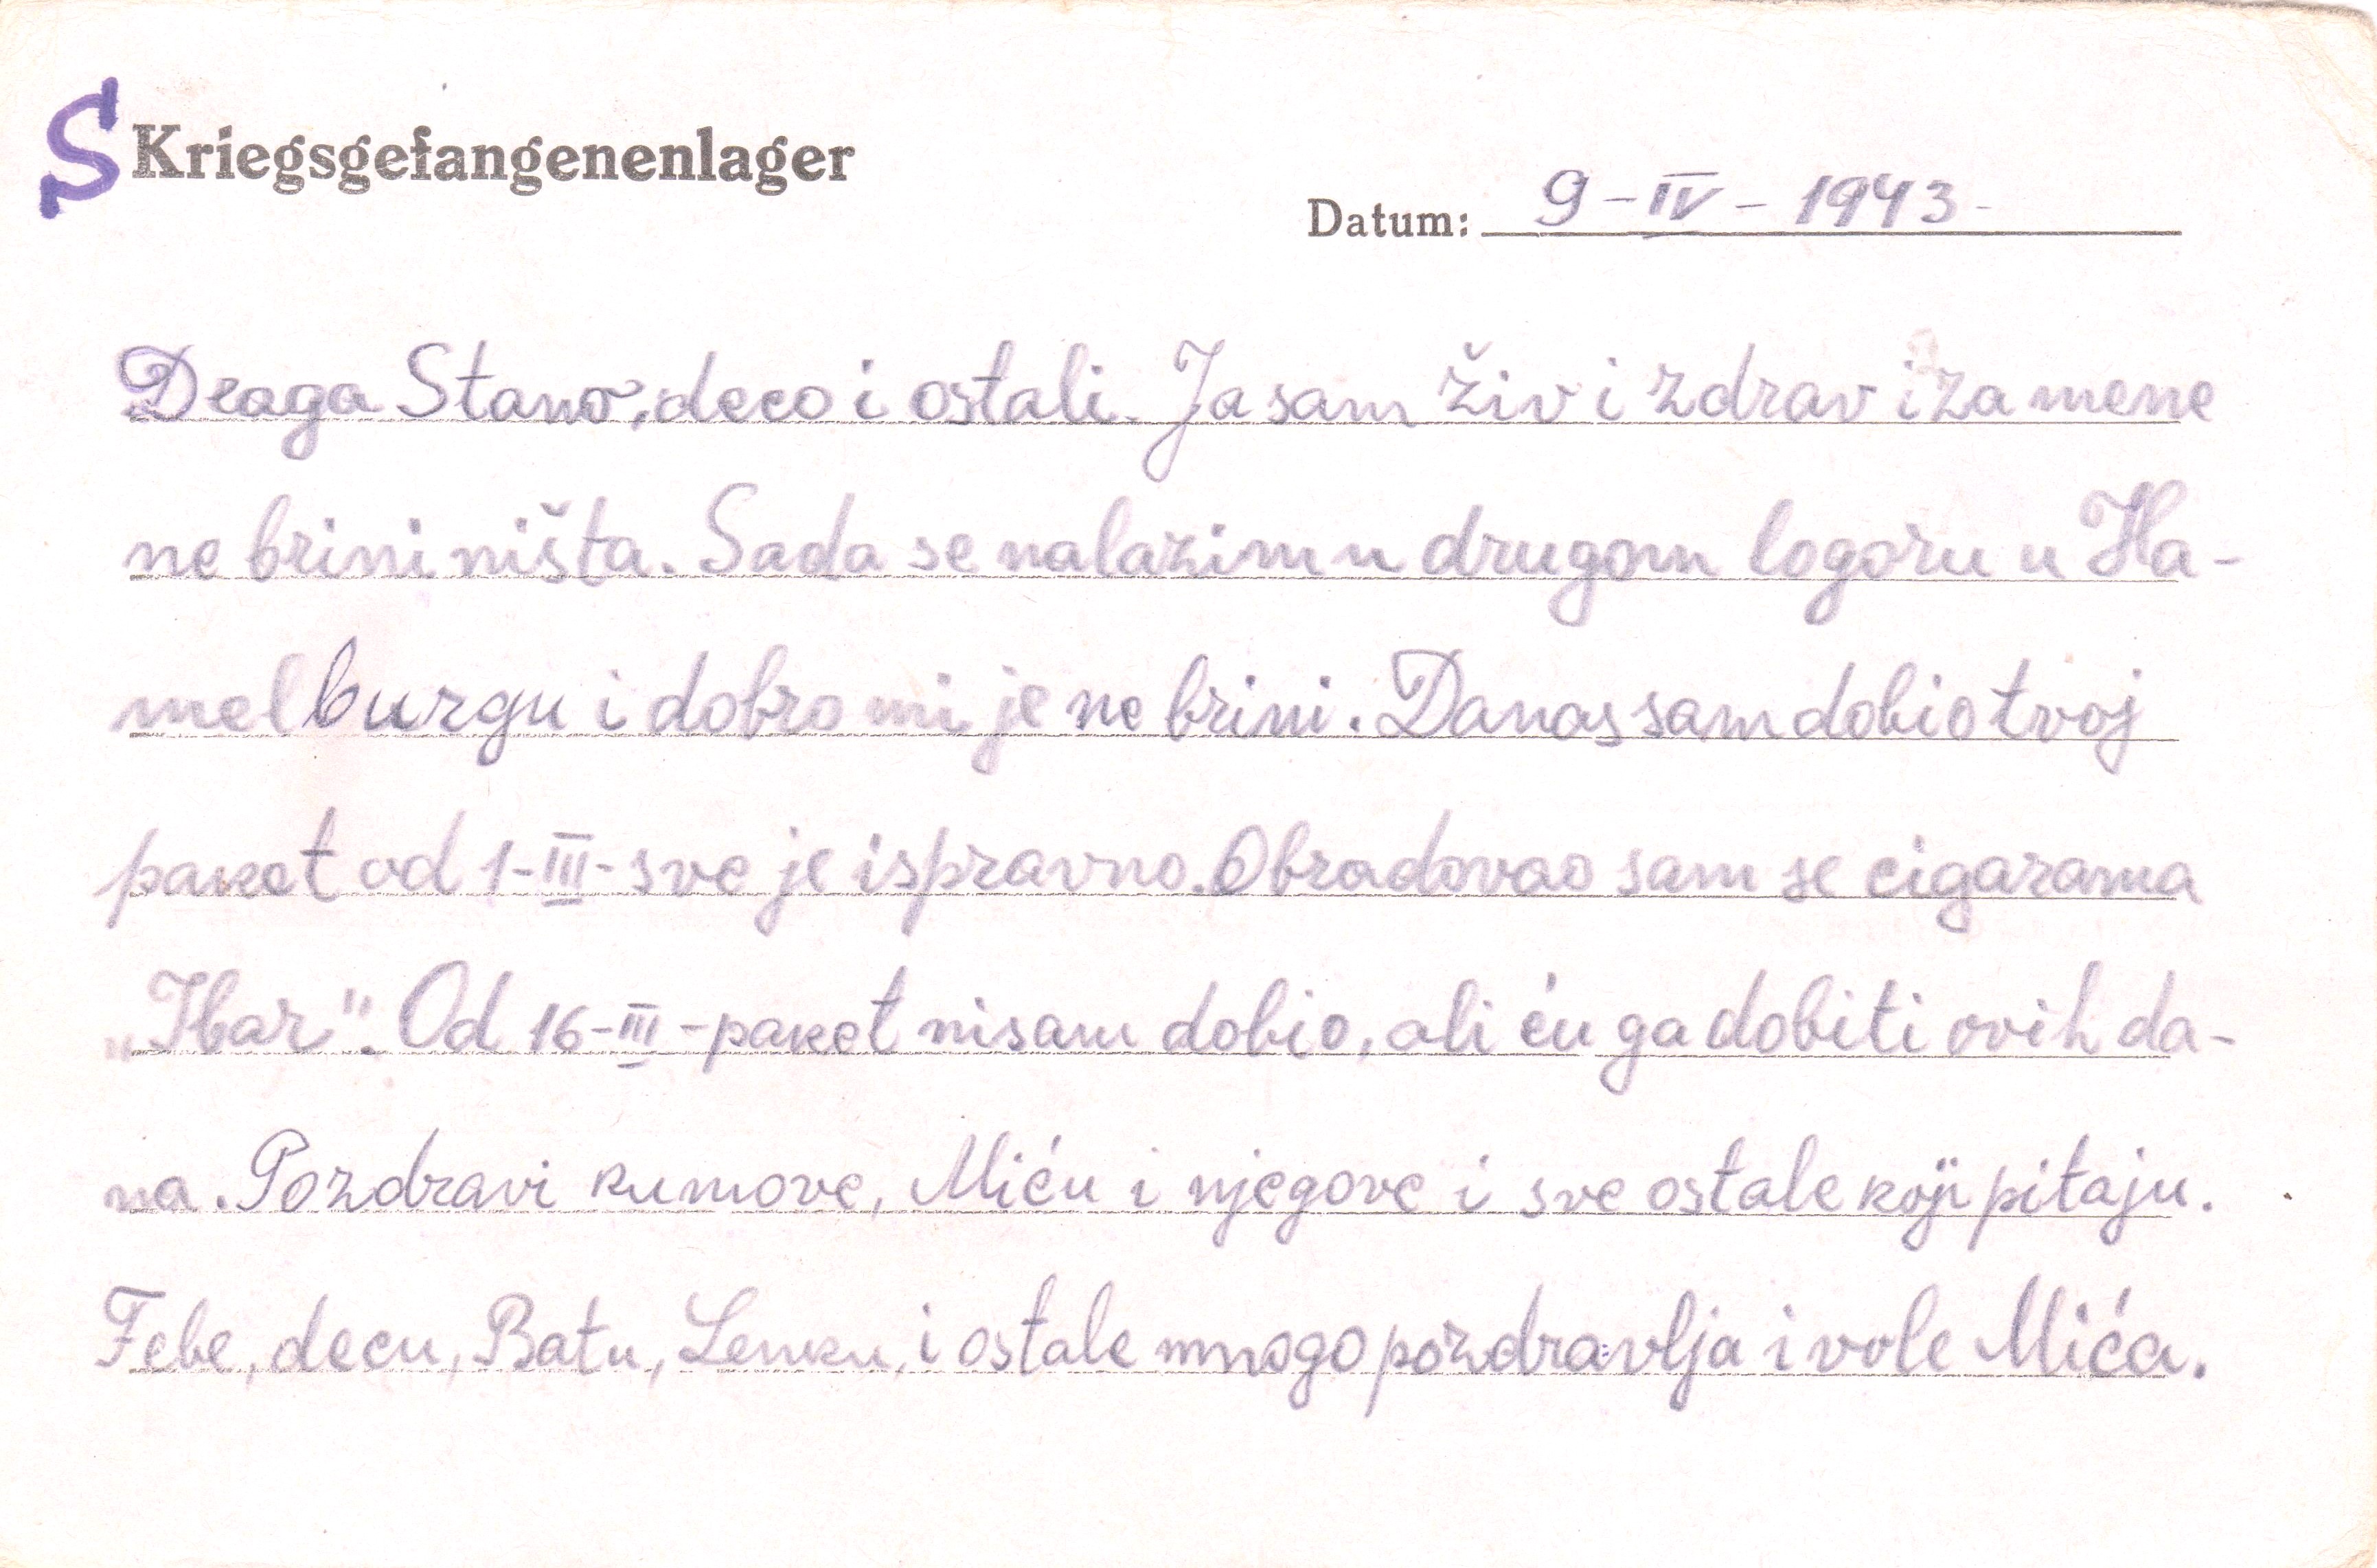 S Kriegsgefangenenlager
Datum: 9-IV-1943-
Draga Stano, deco i ostali. Ja sam živ i zdrav i za mene
ne brini ništa. Sada se nalazim u drugom logoru u Ha-
melburgu i dobro mi je ne brini. Danas sam dobio tvoj
paket od 1-III-sve je ispravno. Obradovao sam se cigarama
„Ibar". Od 16-III-paket nisam dobio, ali ću ga dobiti ovih da-
na. Pozdravi kumove, Miću i njegove i sve ostale koji pitaju.
Tebe, decu, Batu, Lenku, i ostale mnogo pozdravlja i vole Mića.